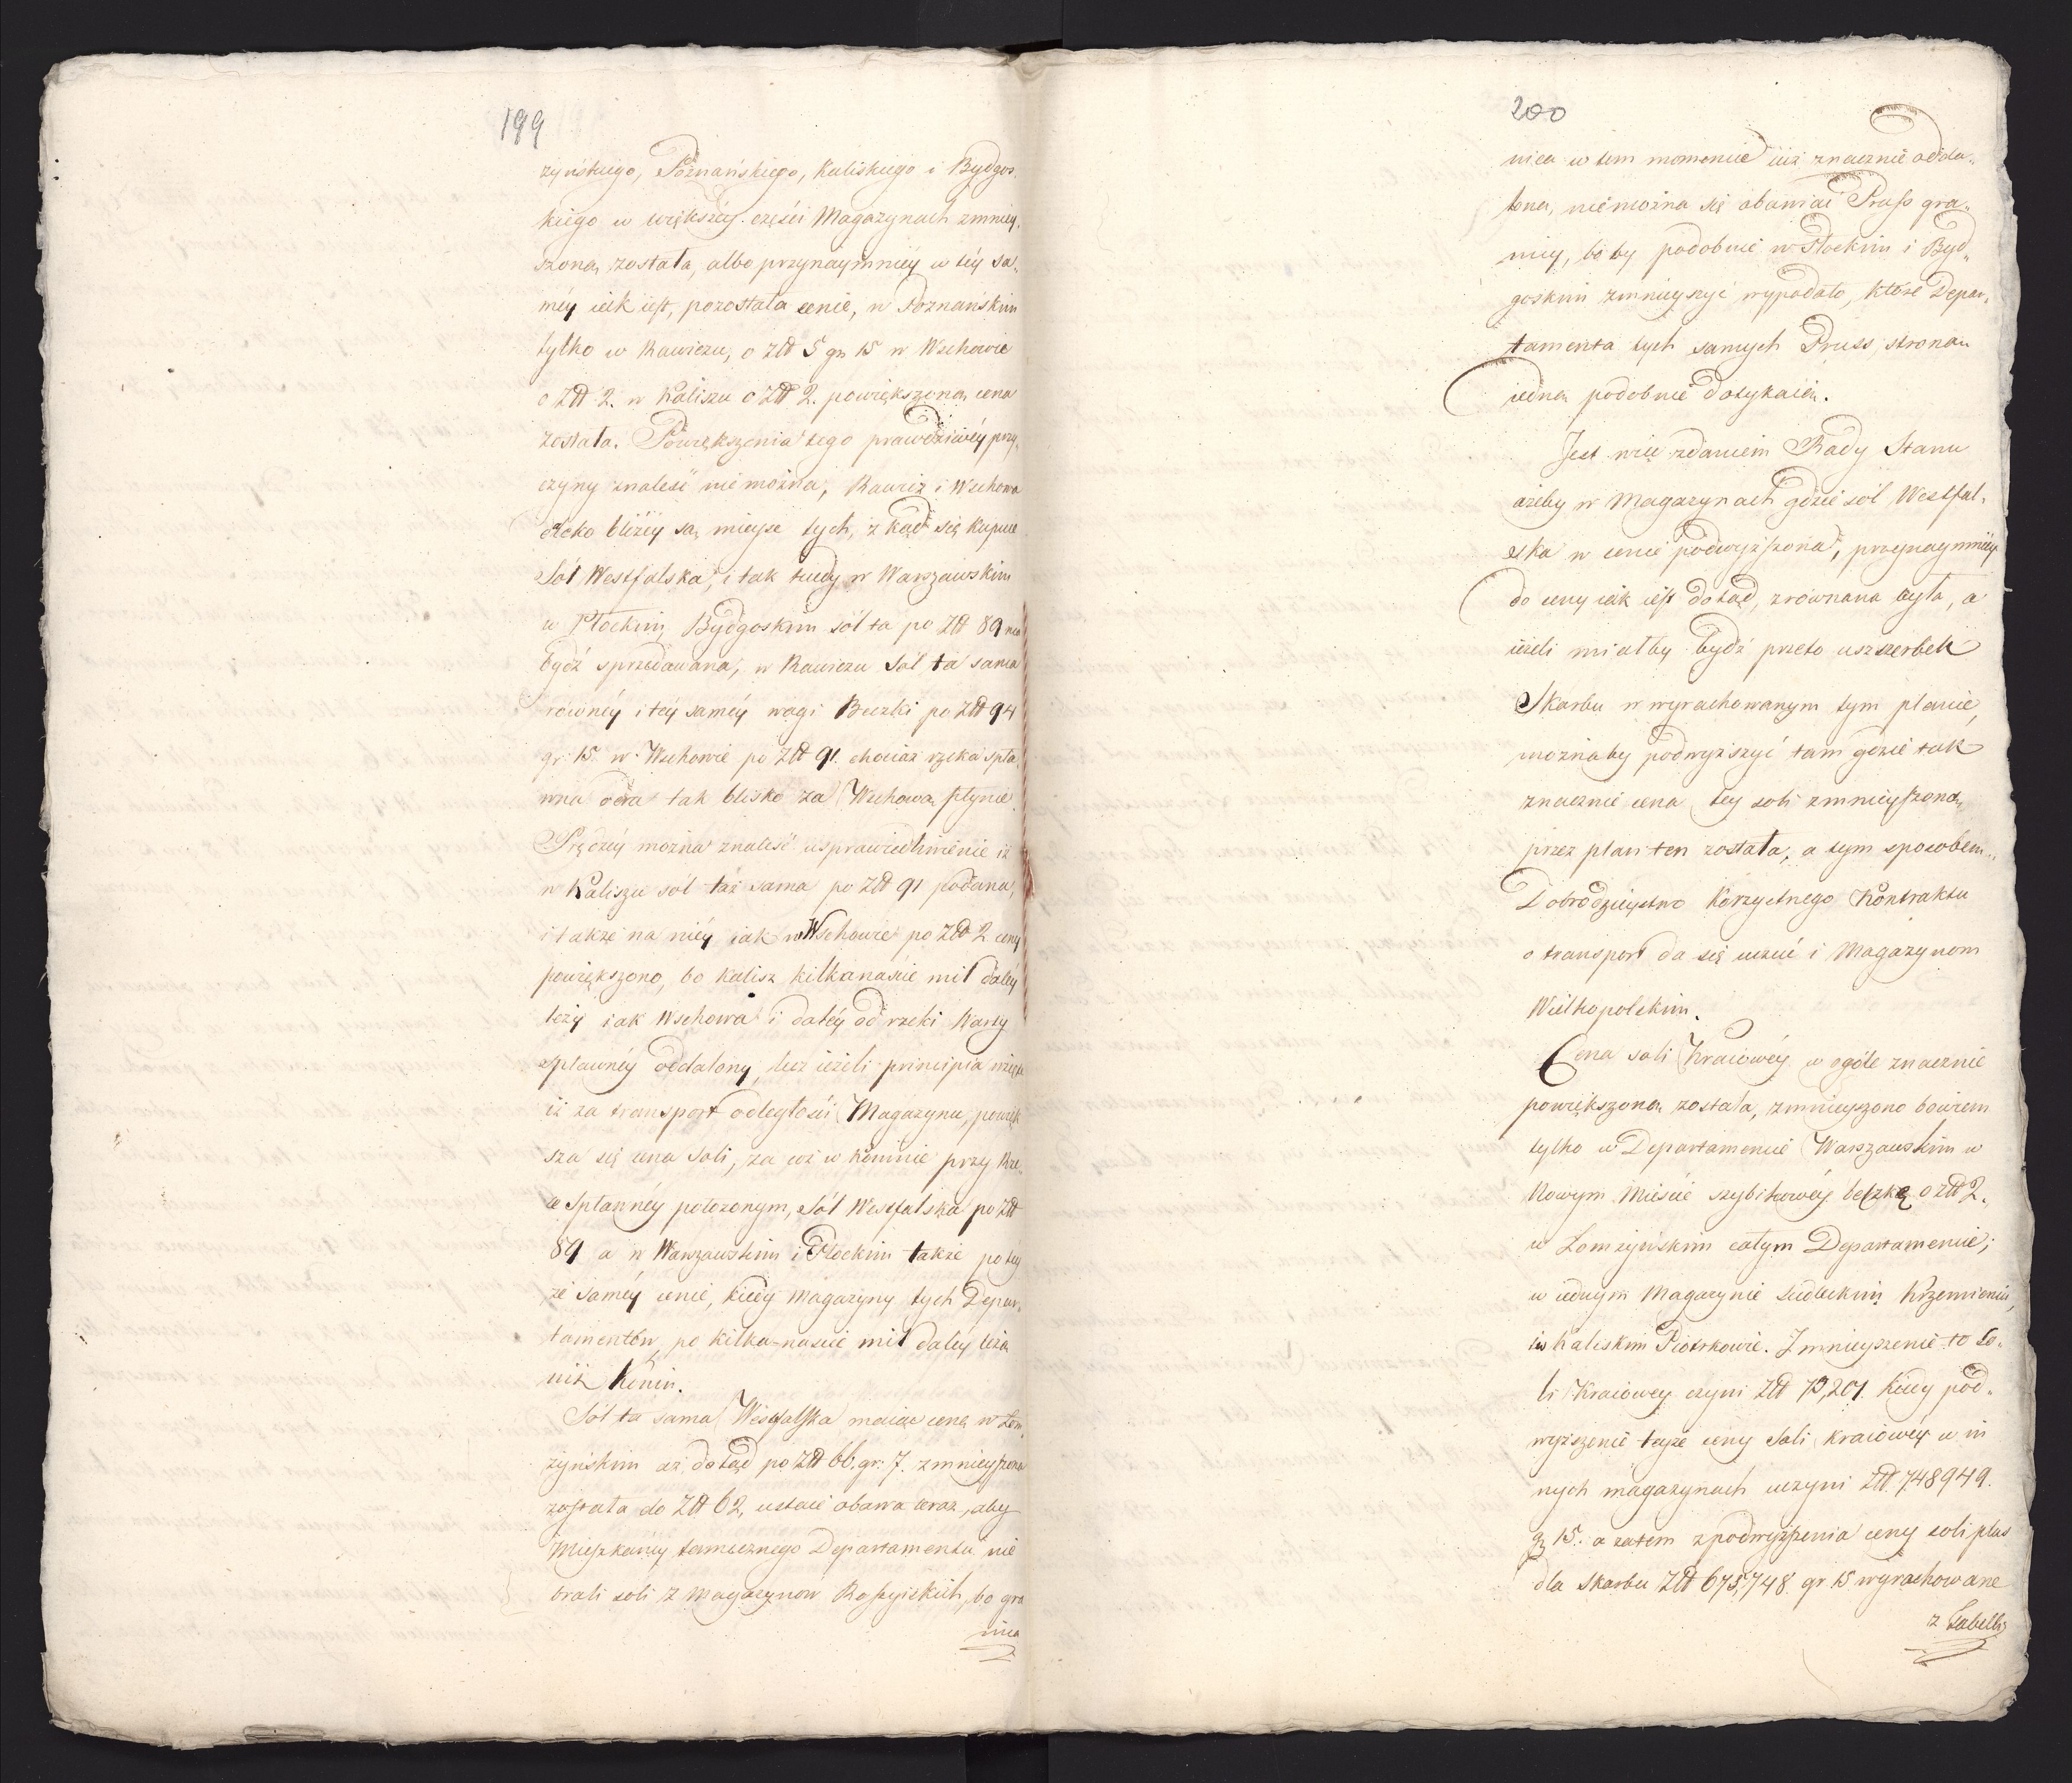 199
żyńskiego, Poznańskiego, Kaliskiego i Bydgos
kiego w większéy części Magazynach zmniey,
szoną została, albo przynaymniéy w téy sa„
méy iak iest, pozostała cenie, w Poznańskim
tylko w Rawiczu, o Złł 5 gr 15 w Wschowie
o Złł 2. w Kaliszu o Złł 2. powiększoną cena
została. Powiększenia tego prawdziwéy przy„
czyny znaleść nie można, Rawicz i Wschowa
bliżéy są mieysc tych, z kąd się kupuie
Sól Westfalska, i tak kiedy w Warszawskim
w Płockim, Bydgoskim sól ta po Złł 89 ma
bydź sprzedawana, w Rawiczu Sól ta sama
równéy i téy saméy wagi Beczki po Złł 94
gr. 15. w Wschowie po Złł 91. chociaż rzeka spła„
wna odra tak blisko za Wschową płynie.
Prędzéy można znaleść usprawiedliwienie iż
w Kaliszu sól taż sama po Złł 91 podana,
i także na niéy iak w Wschowie po Złł 2 ceny
powiększono, bo Kalisz kilkanaście mil daléy
leży iak Wschowa i daléy od rzeki Warty
spławnéy oddalony, lecz ieżeli principia wzięte
iż za transport odległości Magazynu, powięk
sza się cena Soli, za cóż w Koninie przy Rze„
ce Spławnéy położonym, Sól Westfalska po Złł
89 a w Warszawskim i Płockim także po téy
że saméy cenie, kiedy magazyny tych Depar„
tamentów, po kilka-naście mil daléy leżą
niż Konin.
Sól ta sama Westfalska maiąc cenę w Łom„
żyńskim aż dotąd po Złł 66. gr: 7. zmnieyszona
została do Złł 62, ustaie obawa teraz, aby
Mieszkańcy tamecznego Departamentu nie
brali soli z magazynow Rossyiskich, bo gra
nica
200
nica w tem momencie iuż znacznie odda„
lona, nie można się obawiać Pruss gra„
nicy, bo by podobnie w Płockim i Byd„
goskim zmnieyszyć wypadało, które Depar„
tamenta tych samych Pruss stroną
iedną podobnie dotykaią.
Jest więc zdaniem Rady Stanu
ażeby w Magazynach gdzie sól Westfal„
ska w cenie podwyższona, przynaymniéy
do ceny iak iest dotąd, zrównana była, a
ieżeli miałby bydź przeto uszczerbek
Skarbu w wyrachowanym tym planie,
można by podwyższyć tam gdzie tak
znacznie cena téy soli zmnieyszoną
przez plan ten została, a tym sposobem„
Dobrodzieystwo korzystnego Kontraktu
o transport da się uczuć i Magazynom
Wielkopolskim.
Cena soli Kraiowéy w ogóle znacznie
powiększoną została, zmnieyszono bowiem
tylko w Departamencie Warszawskim w
Nowym Mieście szybikowéy beczkę o Złł 2.
w Łomżyńskim całym Departamencie;
w iednym Magazynie Siedleckim Krzemieniu,
i w Kaliskim Piotrkowie. Zmnieyszenie to So„
li Kraiowey czyni Złł 73,201. kiedy pod„
wyższenie teyże ceny Soli kraiowéy w in
nych magazynach uczyni Złł. 748949.
gr 15. a zatem z podwyższenia ceny soli plus
dla Skarbu Złł 675,748. gr 15 wyrachowane
z Tabelli